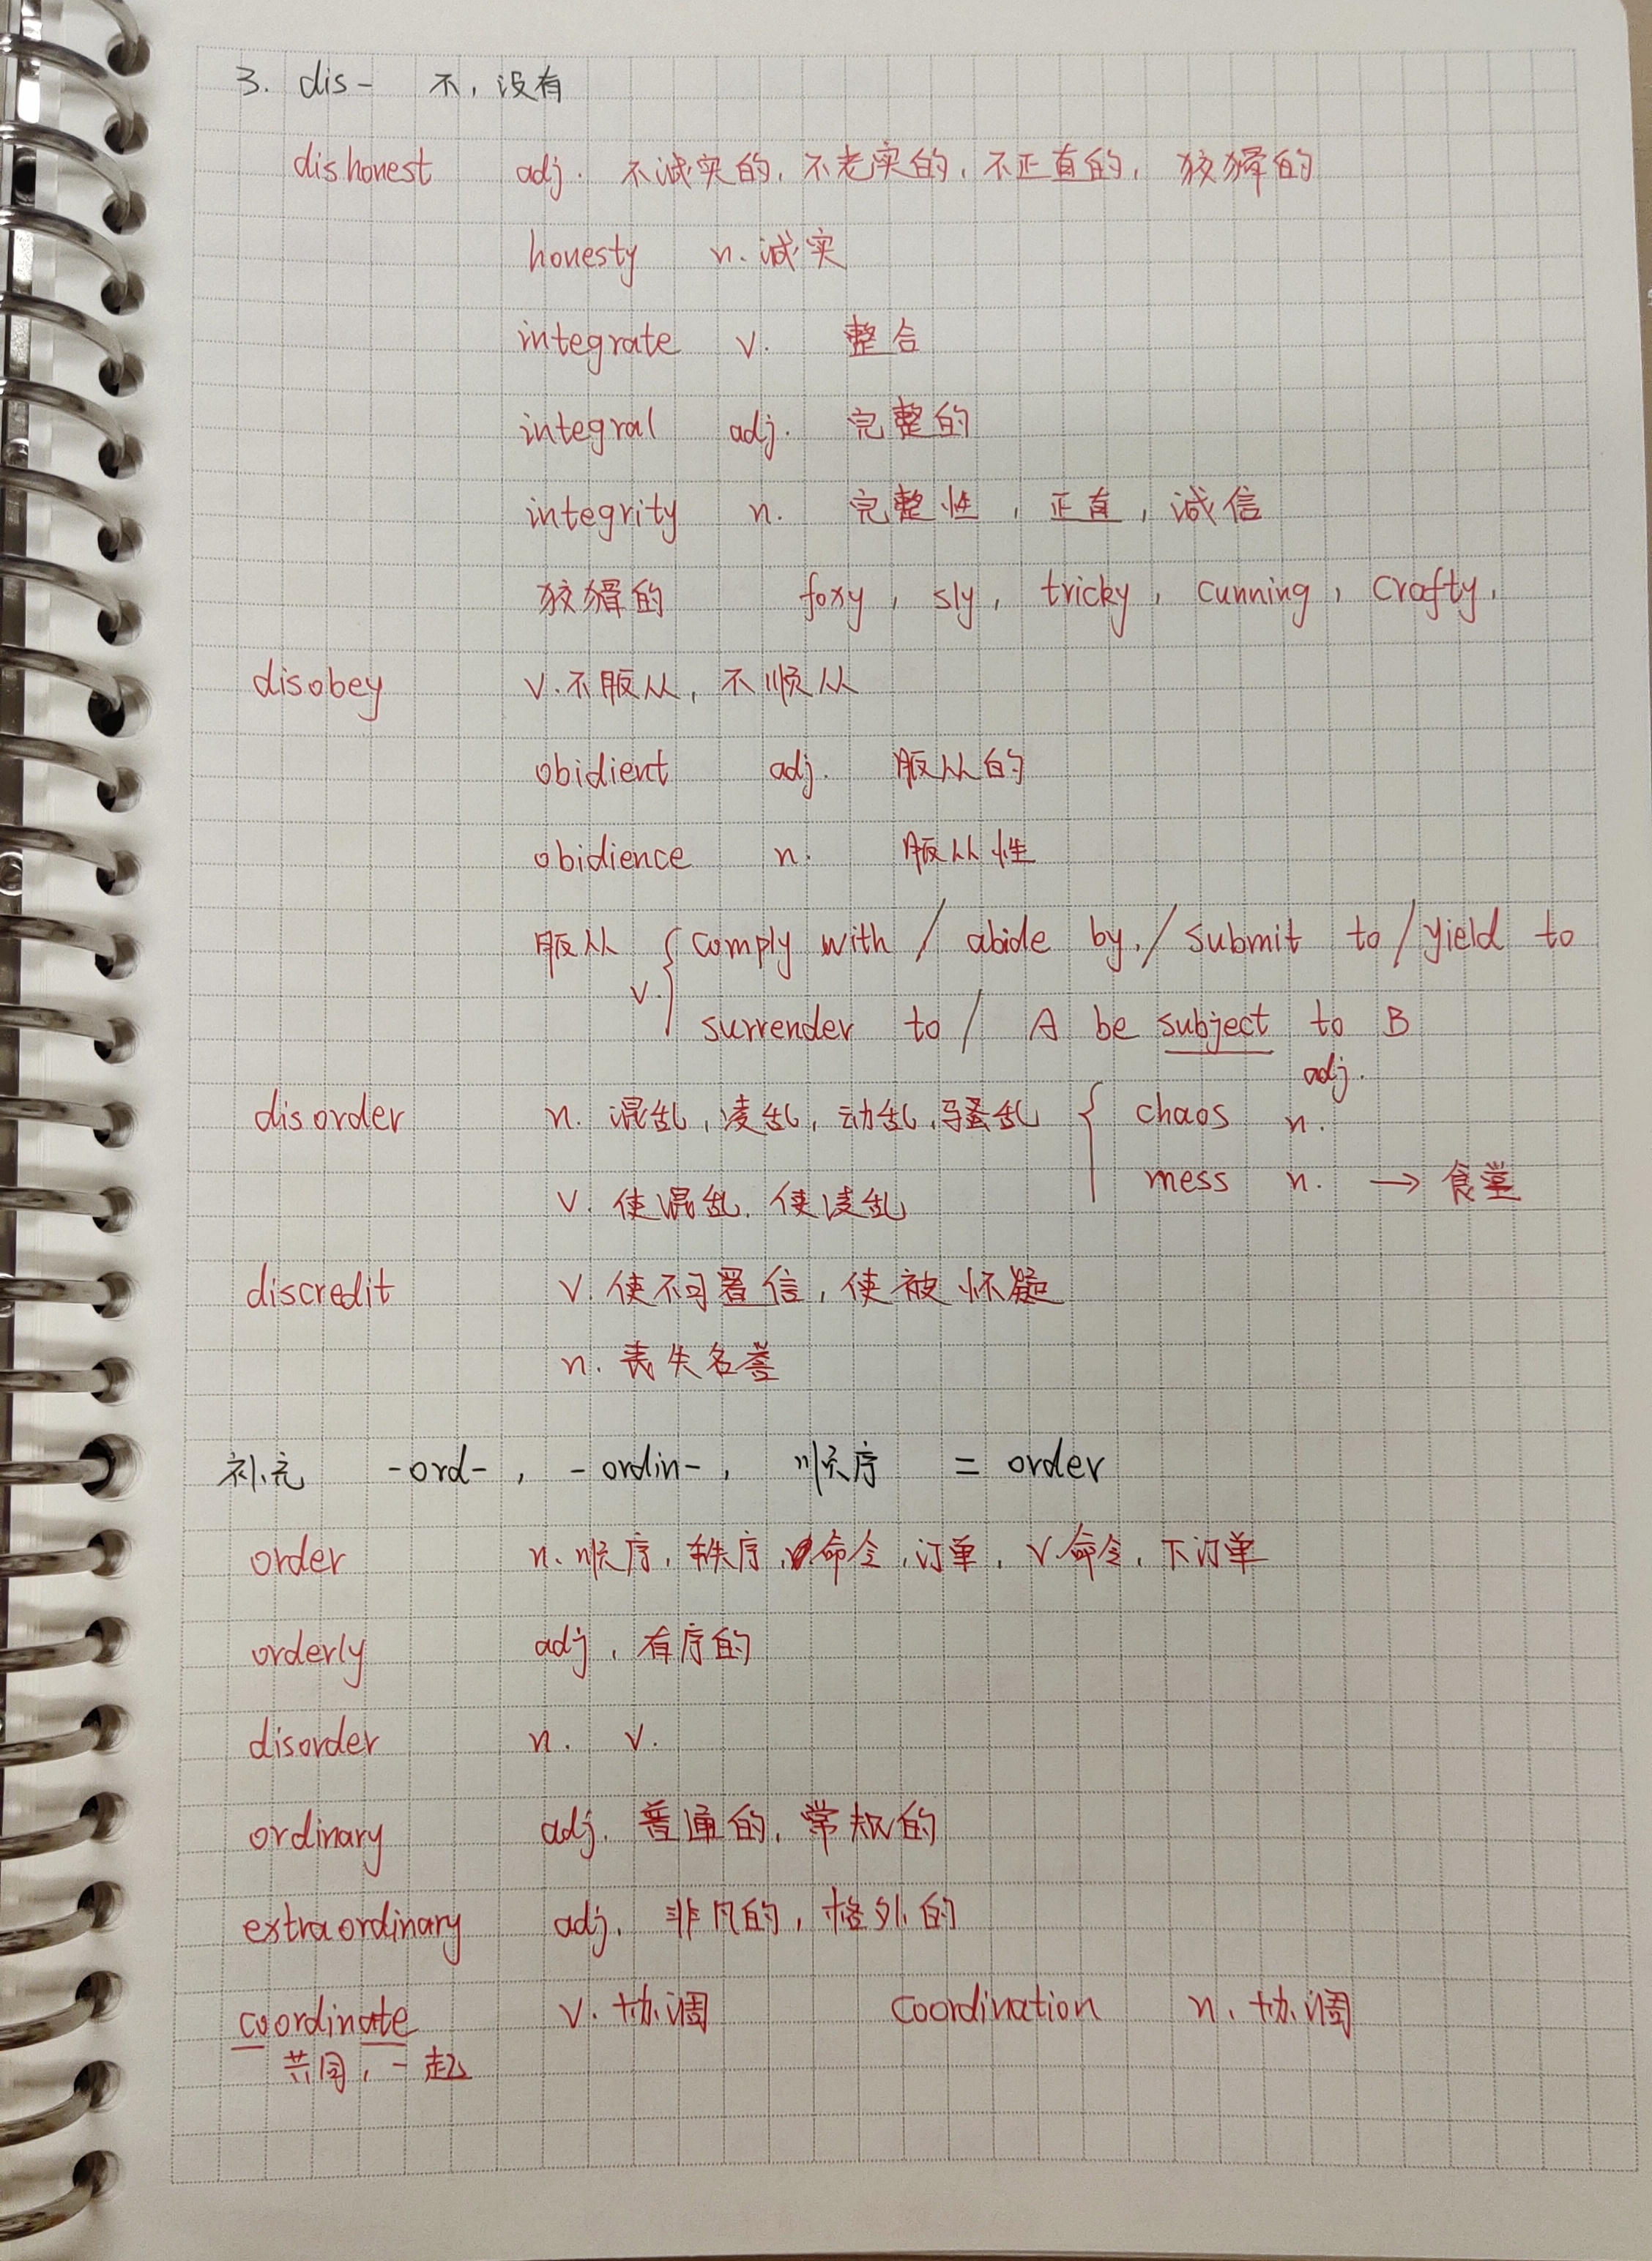 3. dis- 不，没有
dishonest adj. 不诚实的，不老实的，不正直的，狡猾的
honesty n. 诚实
integrate v. 整合
integral adj. 完整的
integrity n. 完整性，正直，诚信
狡猾的 foxy, sly, tricky, cunning, crafty,
disobey v. 不服从，不顺从
obidient adj. 服从的
obidience n. 服从性
服从 v. { comply with / abide by / submit to / yield to
surrender to / A be subject to B
adj.
disorder n. 混乱，凌乱，动乱，骚乱 { chaos n.
mess n. → 食堂
v. 使混乱，使凌乱
discredit v. 使不可置信，使被怀疑
n. 丧失名誉
补充 -ord-, -ordin-, 顺序 = order
order n. 顺序，秩序，命令，订单，v. 命令，下订单
orderly adj. 有序的
disorder n. v.
ordinary adj. 普通的，常规的
extraordinary adj. 非凡的，格外的
coordinate v. 协调 coordination n. 协调
共同，一起